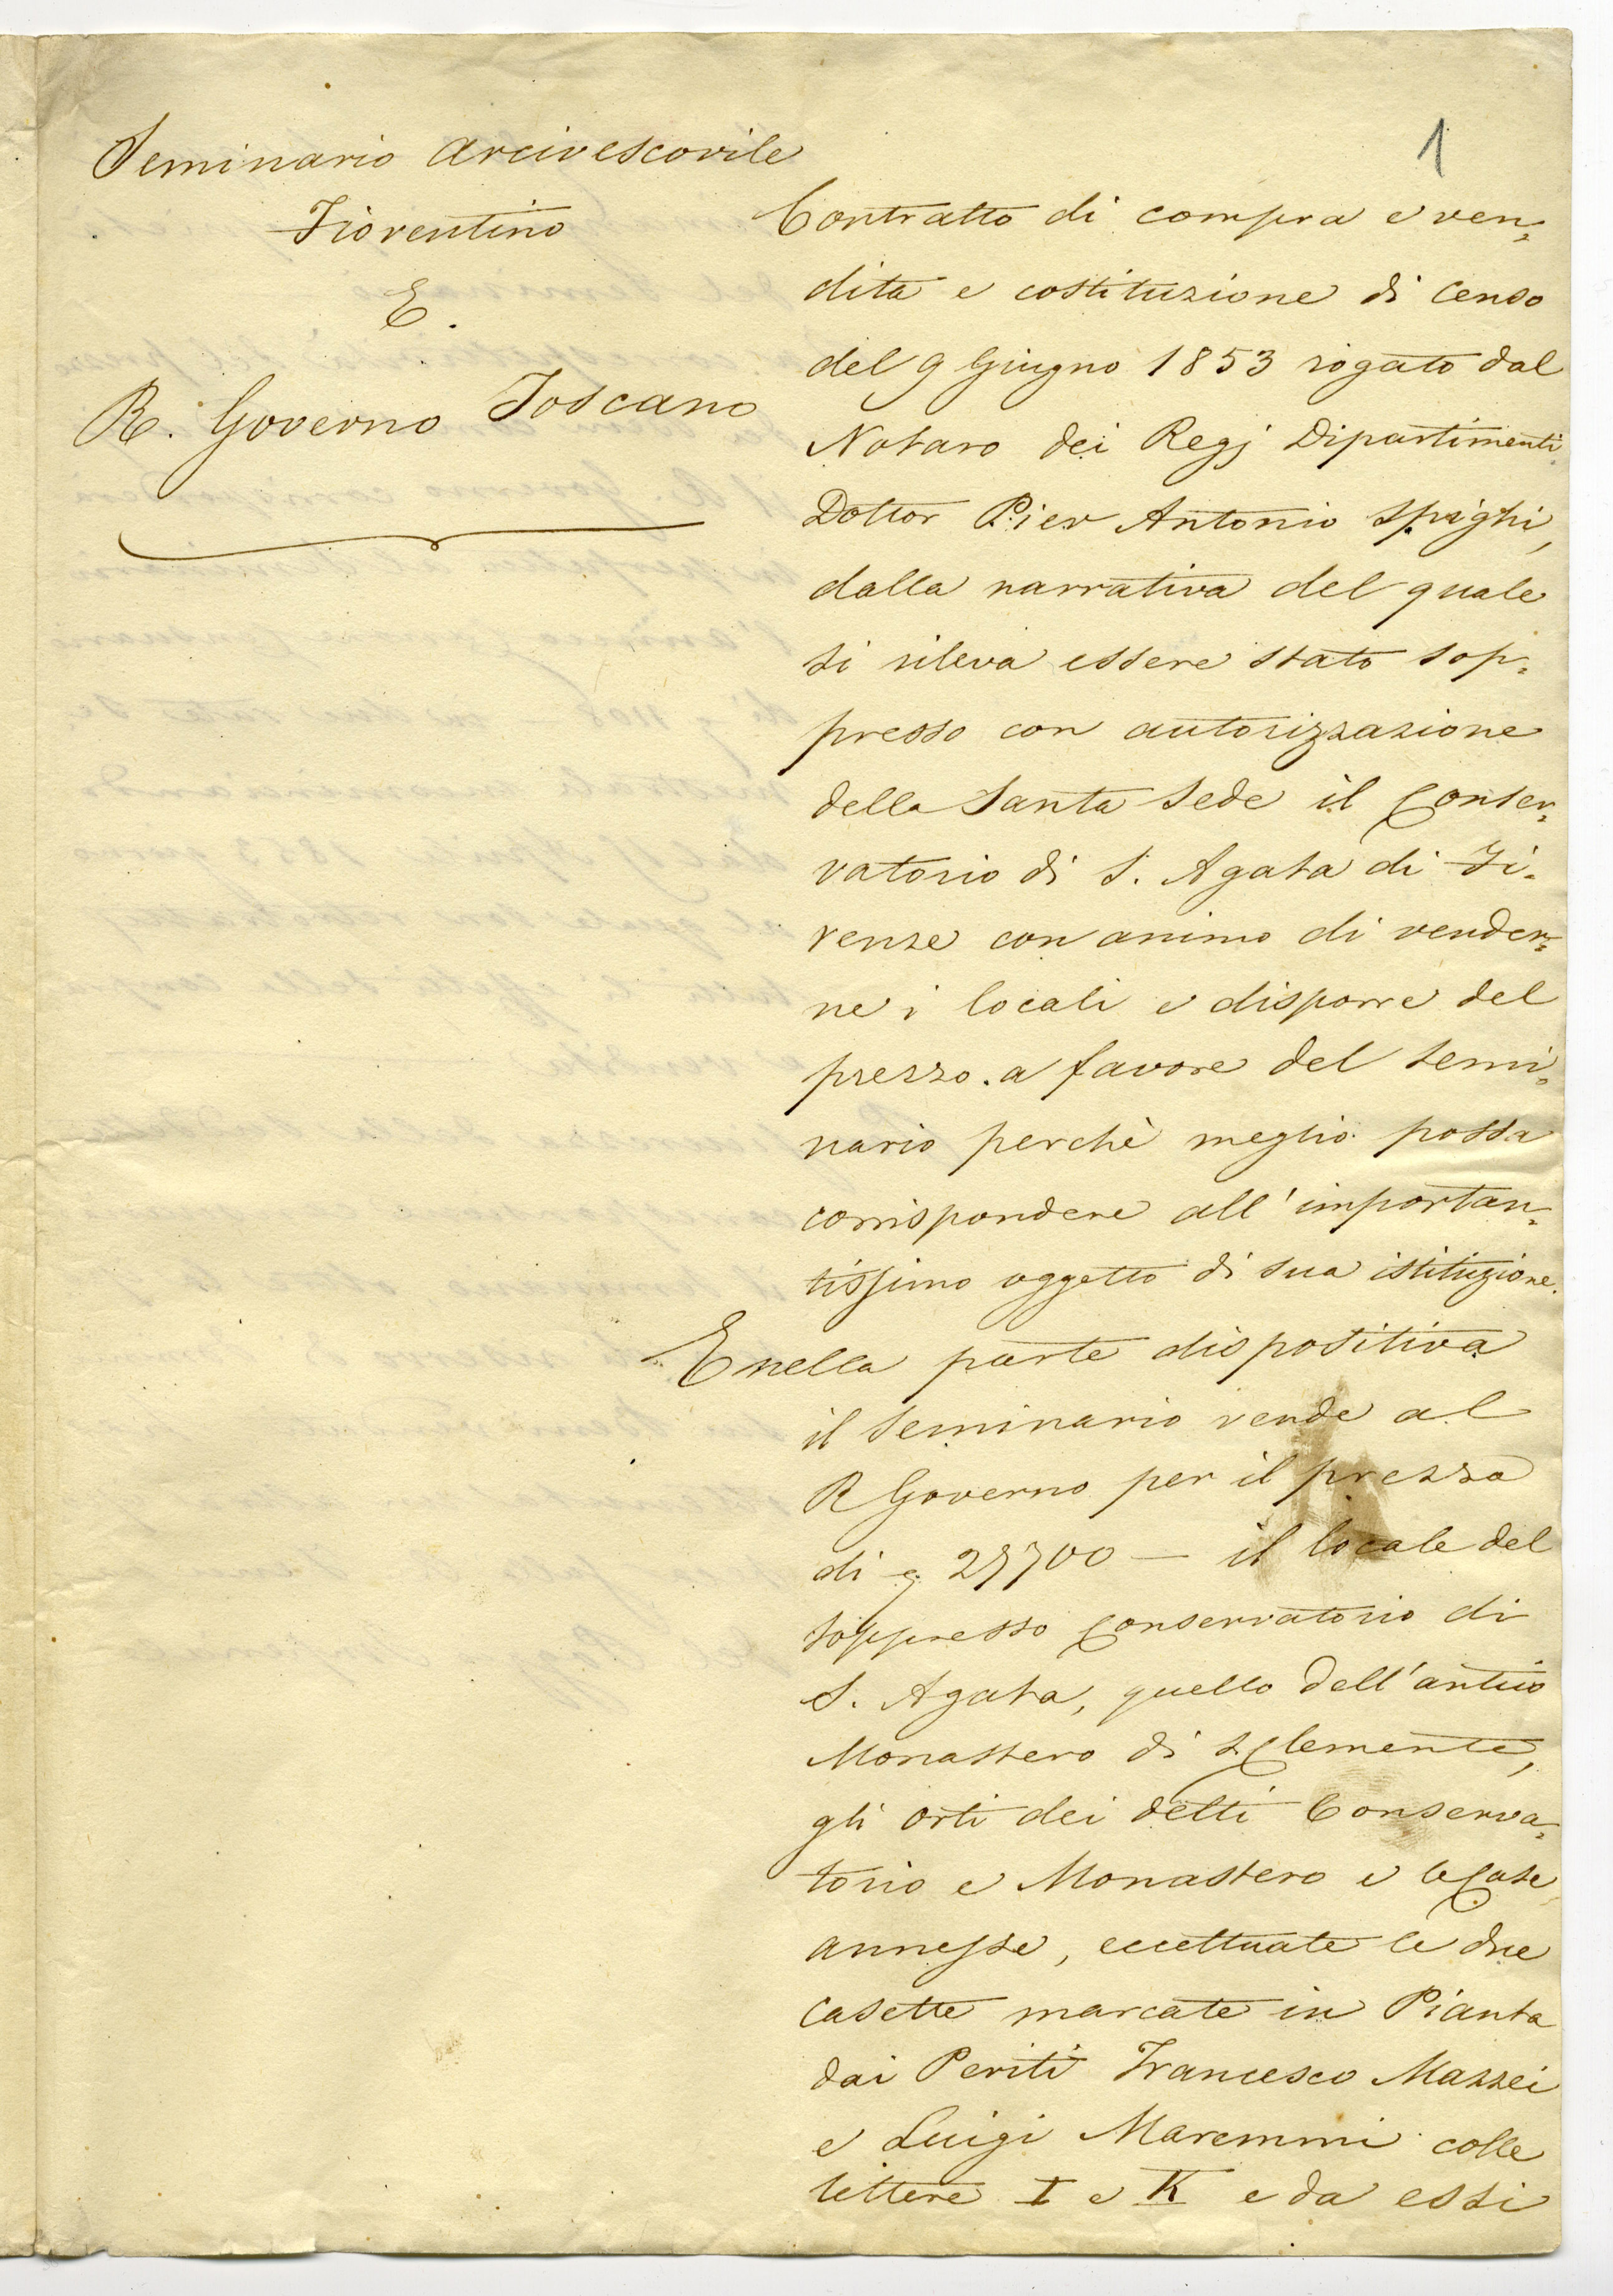 1
Seminario Arcivescovile
Fiorentino
E.
R. Governo Toscano
Contratto di compra e ven=
dita e costituzione di Censo
del 9 Giugno 1853 rogato dal
Notaro dei Regj Dipartimenti
Dottor Pier Antonio Spighi,
dalla narrativa del quale
si rileva essere stato sop=
presso con autorizzazione
della Santa Sede il Conser=
vatorio di S. Agata di Fi=
renze con animo di vender=
ne i locali e disporre del
prezzo a favore del Semi=
nario perchè meglio possa
corrispondere all'importan=
tissimo oggetto di sua istituzione.
E nella parte dispositiva
il Seminario vende al
R Governo per il prezzo
di 27700 — il locale del
soppresso Conservatorio di
S. Agata, quello dell'antico
Monastero di S Clemente,
gli orti dei detti Conserva=
torio e Monastero e le Case
annesse, eccettuate le due
casette marcate in Pianta
dai Periti Francesco Mazzei
e Luigi Maremmi colle
lettere I e K e da essi